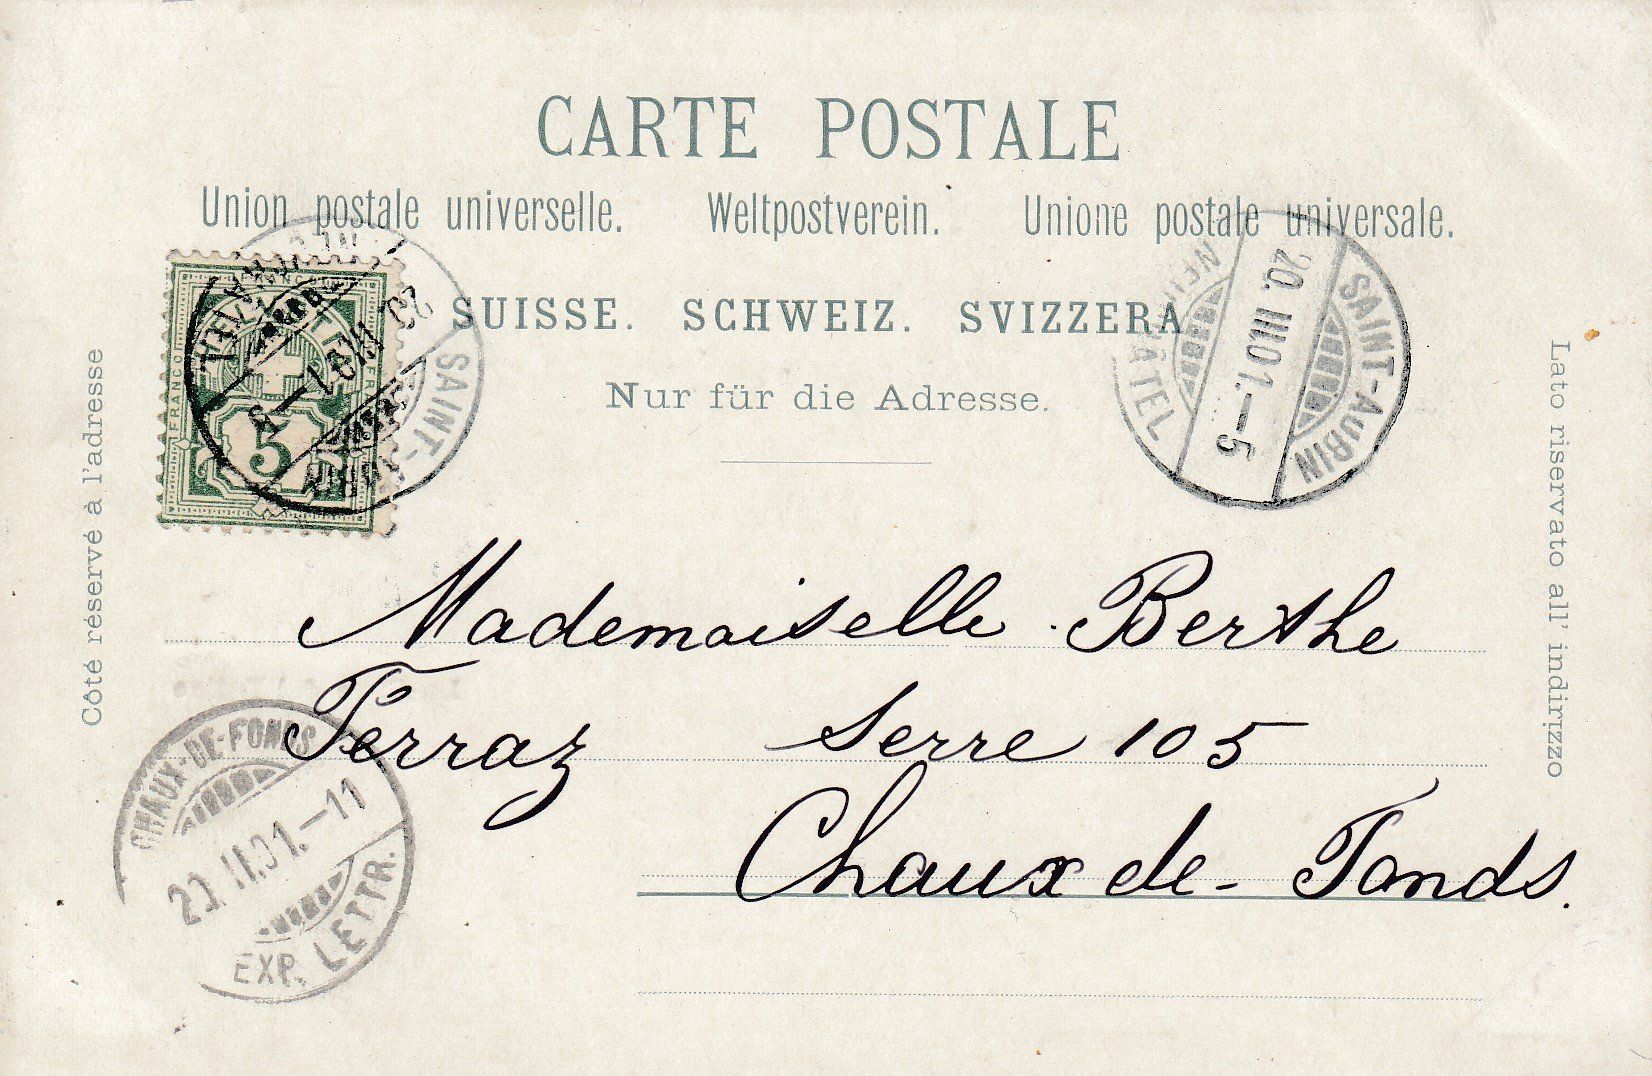 CARTE POSTALE
Union postale universelle. Weltpostverein. Unione postale universale.
SUISSE. SCHWEIZ. SVIZZERA
Nur für die Adresse.
Côté réservé à l'adresse
Lato riservato all' indirizzo
FRANCO
5
SAINT-
SAINT-AUBIN
20. III.01.-5
NEUCHÂTEL
Mademoiselle Berthe
Ferraz Serre 105
Chaux de-Fonds.
CHAUX-DE-FONDS
20. II.01.-11
EXP. LETTR.